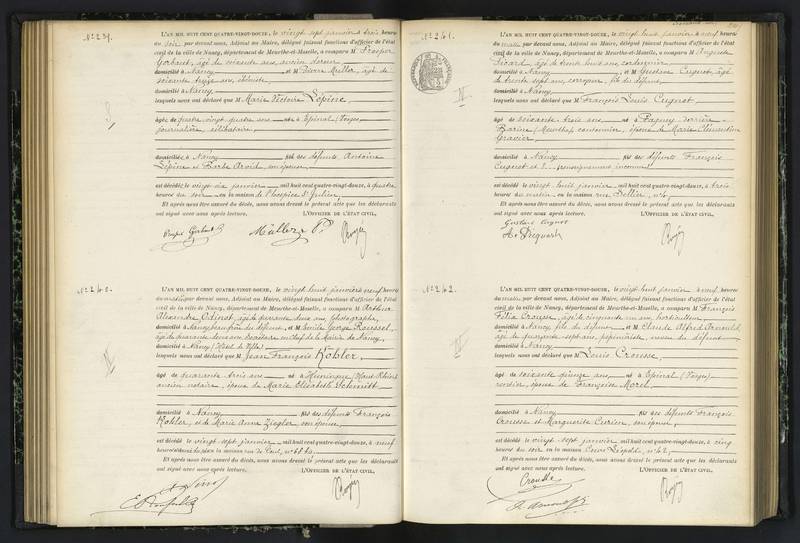 N° 239.
L'AN MIL HUIT CENT QUATRE-VINGT-DOUZE, le vingt sept janvier à trois heures
du soir par devant nous, Adjoint au Maire, délégué faisant fonctions d'officier de l'état
civil de la ville de Nancy, département de Meurthe-et-Moselle, a comparu M Prosper
Gerbaut, âgé de soixante ans, ancien
domicilié à Nancy et M Pierre Muller, âgé de
soixante treize ans, ébéniste
domicilié à Nancy
lesquels nous ont déclaré que M Marie Victoire Lépine,
âgée de quatre vingt quatre ans née à Epinal (Vosges)
journalière, célibataire,
domiciliée à Nancy fille des défunts Antoine
Lépine et Barbe Arvid, son épouse
est décédée le vingt six janvier mil huit cent quatre-vingt-douze, à quatre
heures du soir en la maison de l'hospice St Julien,
Et après nous être assuré du décès, nous avons dressé le présent acte que les déclarants
ont signé avec nous après lecture. L'OFFICIER DE L'ÉTAT CIVIL,
Müller P.
N° 240.
L'AN MIL HUIT CENT QUATRE-VINGT-DOUZE, le vingt huit janvier à neuf heures
du matin par devant nous, Adjoint au Maire, délégué faisant fonctions d'officier de l'état
civil de la ville de Nancy, département de Meurthe-et-Moselle, a comparu M Arthur
Alexandre Odinot, âgé de quarante deux ans, photographe,
domicilié à Nancy, beau frère du défunt et M Emile George Roussel,
âgé de quarante deux ans, Secrétaire en chef de la Mairie de Nancy,
domicilié à Nancy (Hôtel de Ville)
lesquels nous ont déclaré que M Jean François Kobler,
âgé de quarante trois ans né à Huningue (Haut-Rhin)
ancien notaire, époux de Marie Elisabeth Schmitt
domicilié à Nancy fils des défunts François
Kobler, et de Marie Anne Ziegler, son épouse,
est décédé le vingt sept janvier mil huit cent quatre-vingt-douze, à neuf
heures en la maison rue de
Et après nous être assuré du décès, nous avons dressé le présent acte que les déclarants
ont signé avec nous après lecture. L'OFFICIER DE L'ÉTAT CIVIL,
N° 241.
L'AN MIL HUIT CENT QUATRE-VINGT-DOUZE, le vingt huit janvier à neuf heures
du matin par devant nous, Adjoint au Maire, délégué faisant fonctions d'officier de l'état
civil de la ville de Nancy, département de Meurthe-et-Moselle, a comparu M Auguste
Sicard, âgé de trente huit ans, cordonnier,
domicilié à Nancy et M Gustave Cugnot, âgé
de trente sept ans, corroyeur, fils du défunt
domicilié à Nancy
lesquels nous ont déclaré que M François Louis Cugnot
âgé de soixante trois ans né à Pagny derrière
Barine (Meurthe), cantonnier, époux de Marie Clémentine
Gravier
domicilié à Nancy fils des défunts François
Cugnot et prénoms inconnus
est décédé le vingt huit janvier mil huit cent quatre-vingt-douze, à trois
heures du matin en la maison rue
Et après nous être assuré du décès, nous avons dressé le présent acte que les déclarants
ont signé avec nous après lecture. L'OFFICIER DE L'ÉTAT CIVIL,
Gustave Cugnot
N° 242.
L'AN MIL HUIT CENT QUATRE-VINGT-DOUZE, le vingt huit janvier à neuf heures
du matin par devant nous, Adjoint au Maire, délégué faisant fonctions d'officier de l'état
civil de la ville de Nancy, département de Meurthe-et-Moselle, a comparu M François
Félix Crousse, âgé de cinquante un ans, horticulteur
domicilié à Nancy, fils du défunt et M Claude Alfred Arnould
âgé de quarante sept ans, pépiniériste, neveu du défunt
domicilié à Nancy
lesquels nous ont déclaré que M Louis Crousse,
âgé de soixante quinze ans né à Epinal (Vosges)
rentier, époux de Françoise Morel
domicilié à Nancy fils des défunts François
Crousse et Marguerite Curien, son épouse,
est décédé le vingt sept janvier mil huit cent quatre-vingt-douze, à cinq
heures du soir en la maison Cours Léopold, n° 42,
Et après nous être assuré du décès, nous avons dressé le présent acte que les déclarants
ont signé avec nous après lecture. L'OFFICIER DE L'ÉTAT CIVIL,
Crousse